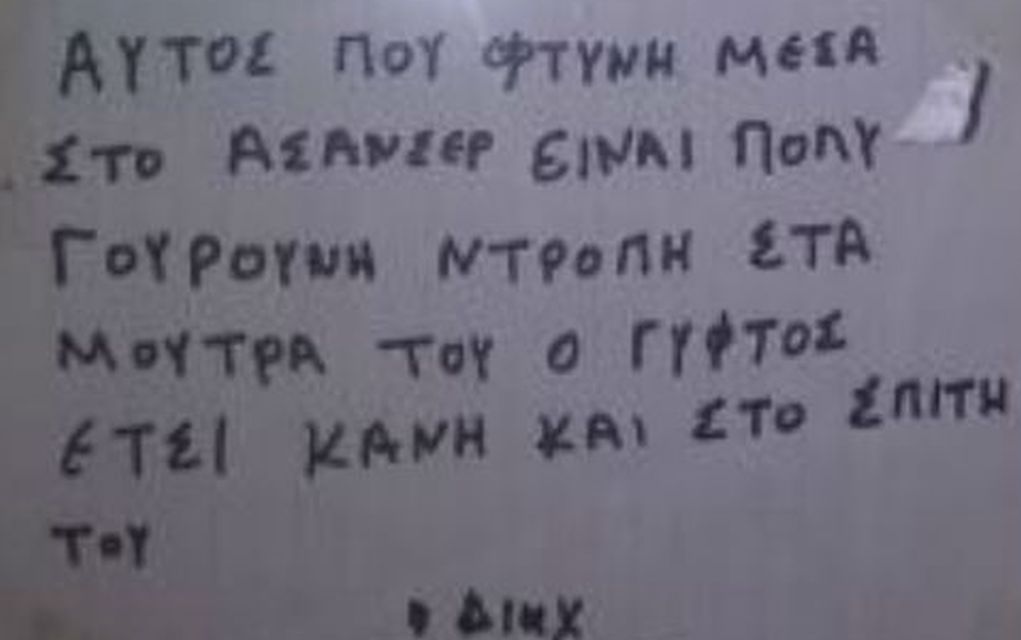 ΑΥΤΟΣ ΠΟΥ ΦΤΥΝΗ ΜΕΣΑ
ΣΤΟ ΑΣΑΝΣΕΡ ΕΙΝΑΙ ΠΟΛΥ
ΓΟΥΡΟΥΝΗ ΝΤΡΟΠΗ ΣΤΑ
ΜΟΥΤΡΑ ΤΟΥ Ο ΓΥΦΤΟΣ
ΕΤΣΙ ΚΑΝΗ ΚΑΙ ΣΤΟ ΣΠΙΤΗ
ΤΟΥ
ΔΙΑΧ